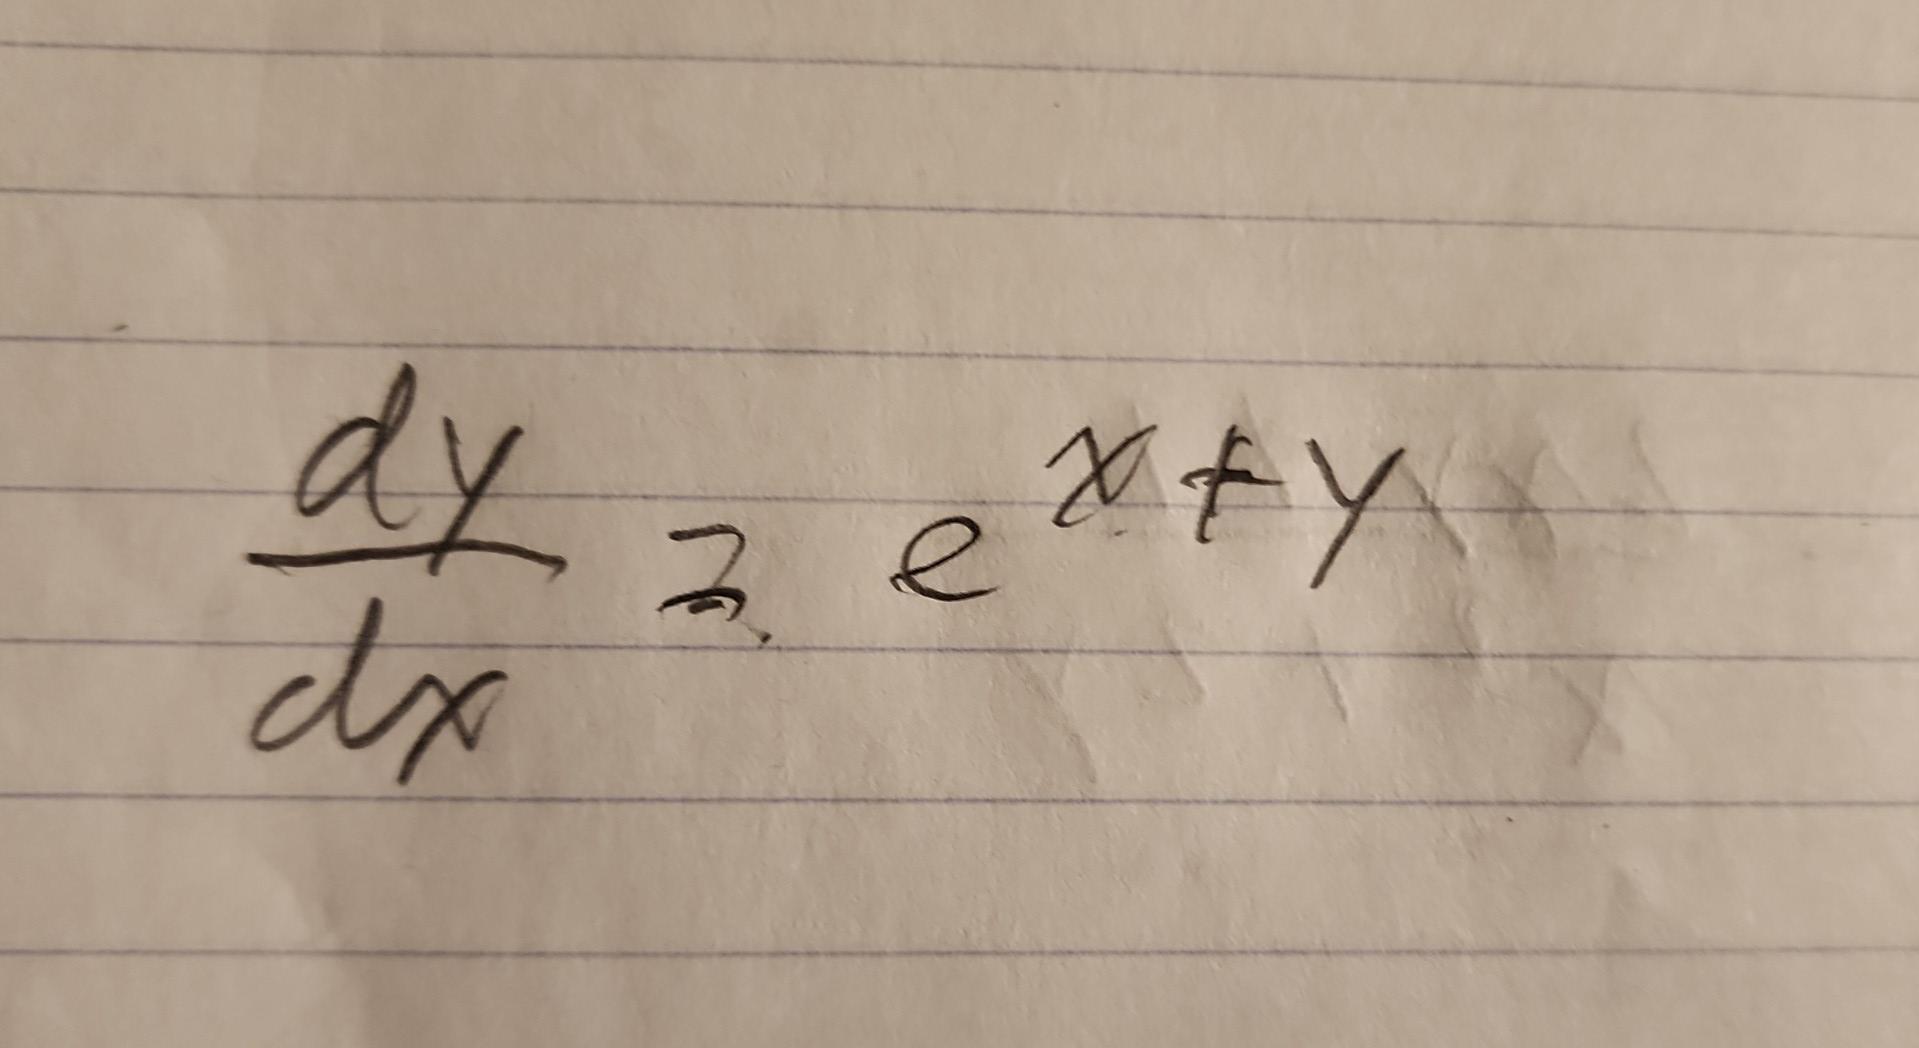 dy/dx = e^{x+y}